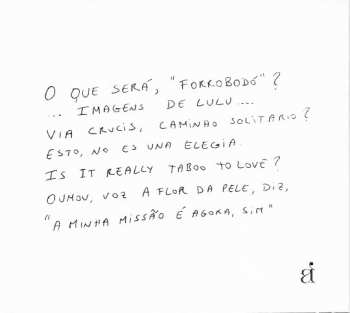 O QUE SERÁ, "FORROBODÓ"?
... IMAGENS DE LULU...
VIA CRUCIS, CAMINHO SOLITARIO?
ESTO, NO ES UNA ELEGIA.
IS IT REALLY TABOO TO LOVE?
OUMOU, VOZ A FLOR DA PELE, DIZ,
"A MINHA MISSÃO É AGORA, SIM"